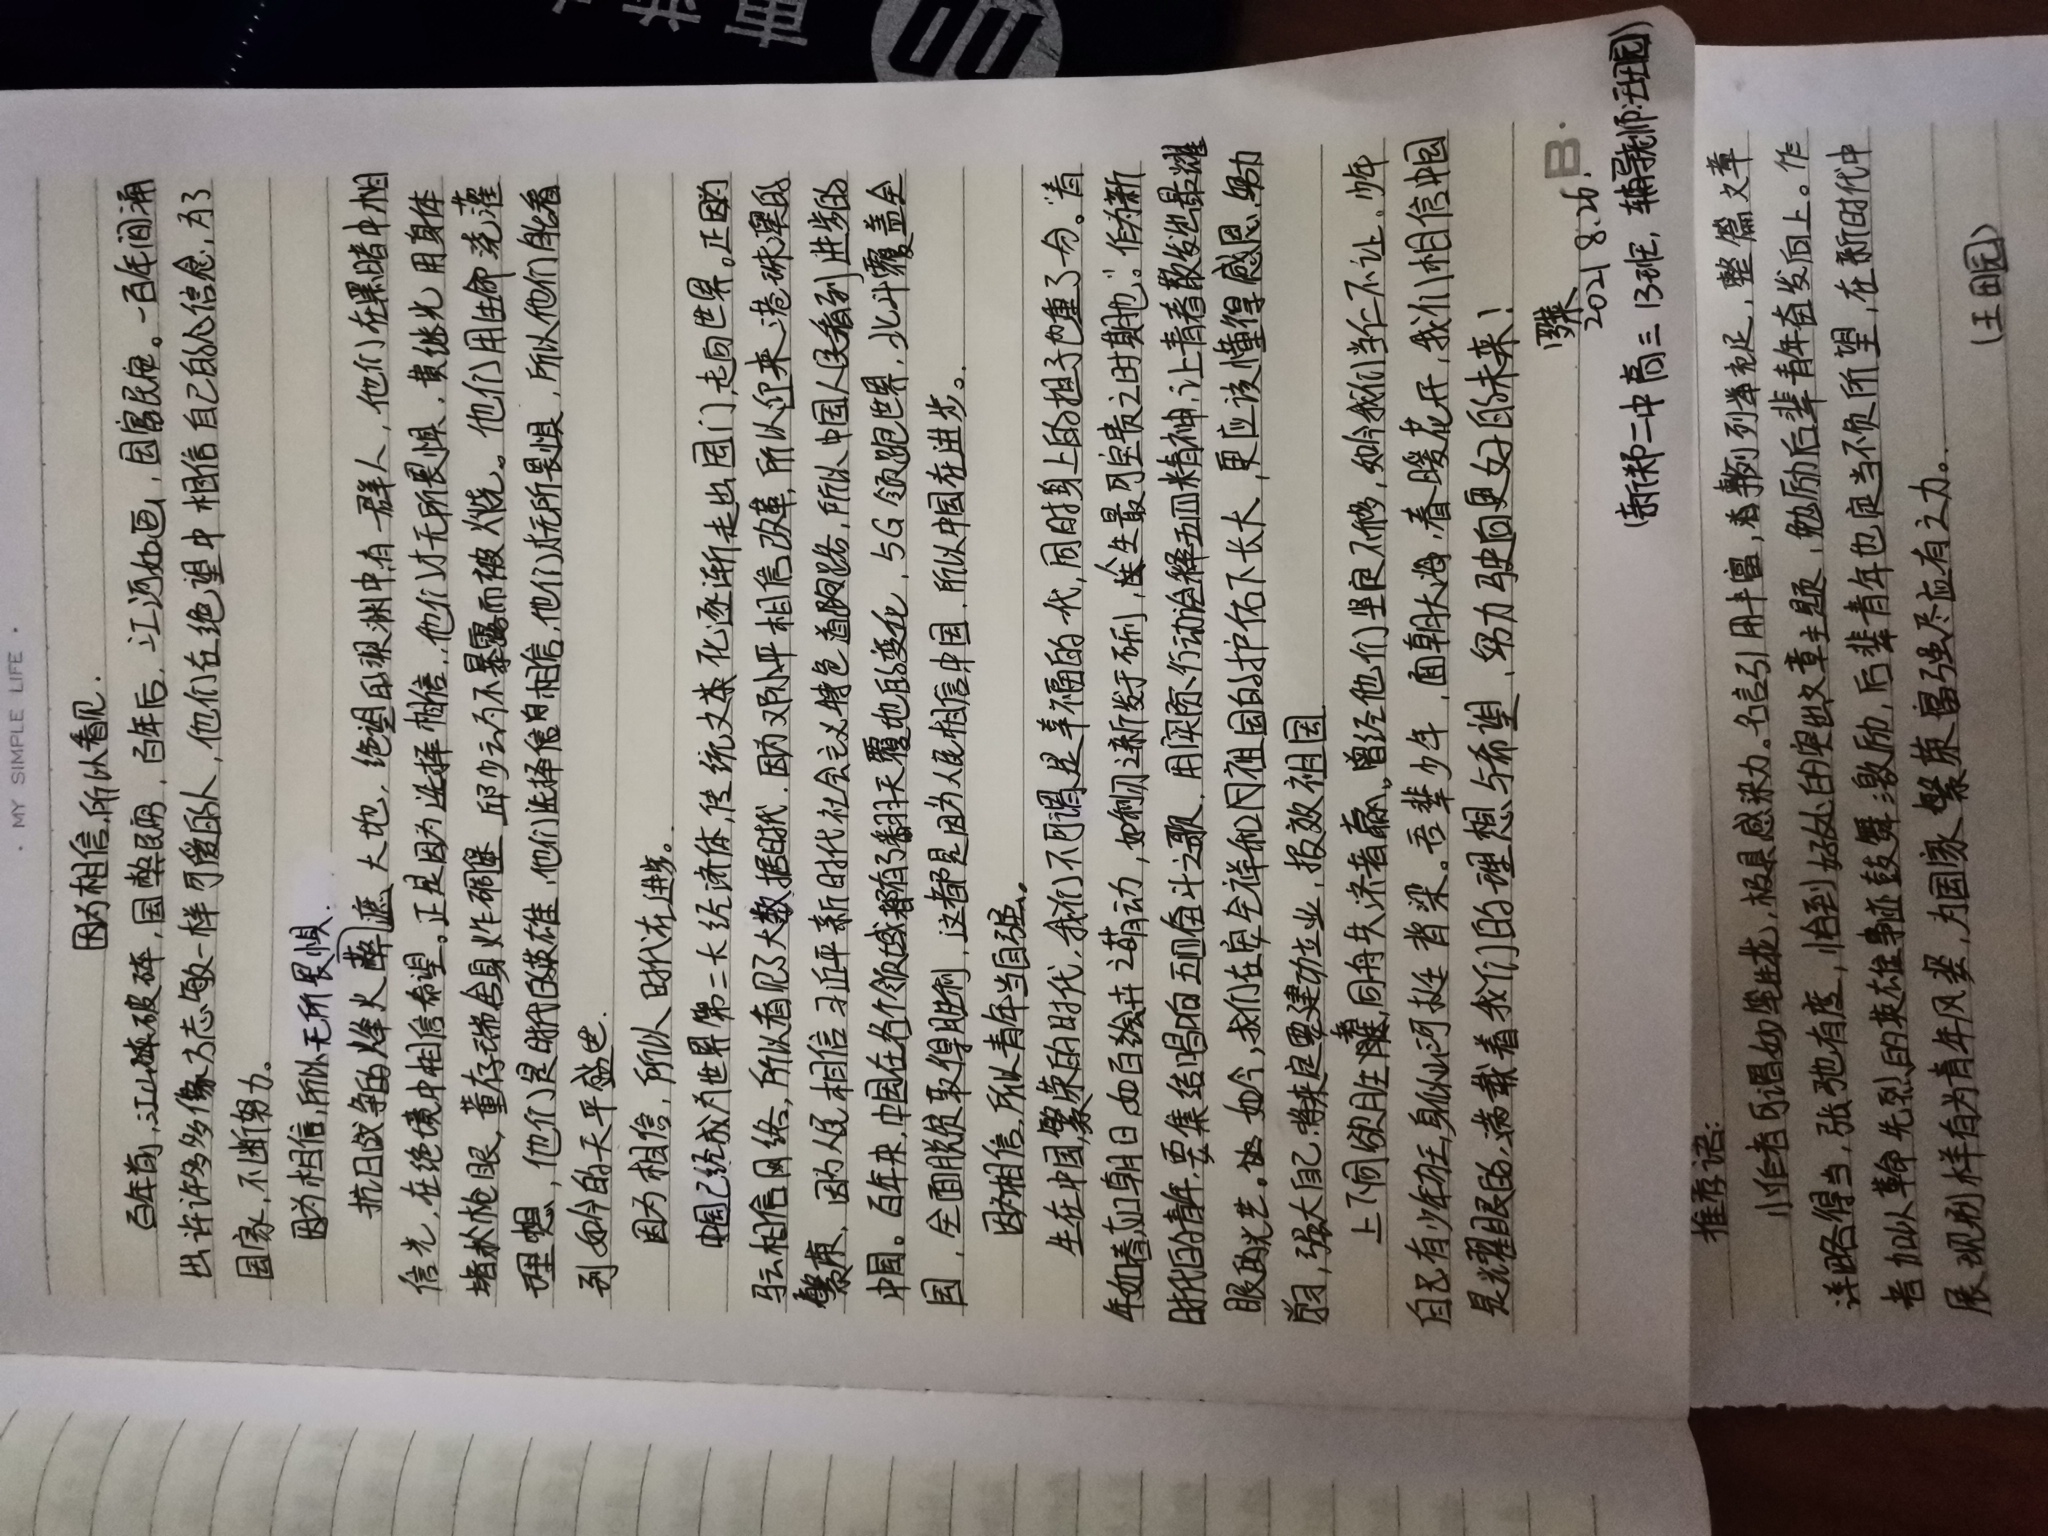 · MY SIMPLE LIFE ·
因为相信,所以看见.
百年前,江山破碎,国弊民穷,百年后,江河如画,国富民饱。一百年间涌
出许许多多像方志敏一样可爱的人,他们在绝望中相信自己的信念,为了
国家,不断努力。
因为相信,所以无所畏惧.
抗日战争的烽火 遮大地,绝望的深渊中,有一群人,他们在黑暗中相
信光,在绝境中相信希望。正是因为选择相信,他们才无所畏惧,黄继光用身体
堵枪眼,董存瑞舍身炸碉堡,邱少云为不暴露而被火烧。他们用生命浇灌
理想,他们是时代的英雄,他们选择相信,他们无所畏惧,所以他们能看
到如今的太平盛世.
因为相信,所以时代在进步。
中国已经成为世界第二大经济体,传统文化逐渐走出国门,走向世界。正因为
马云相信网络,所以看见了大数据时代,因为邓小平相信改革,所以迎来港珠澳的
繁荣,因为人民相信习近平新时代社会主义特色道路,所以中国人民看到进步的
中国。百年来,中国在各个领域都有翻天覆地的变化,5G领跑世界,北斗覆盖全
国,全面脱贫取得胜利,这都是因为人民相信中国,所以中国在进步。
因为相信,所以青年当自强。
生在中国,繁荣的时代,我们不可谓是幸福的一代,同时身上的担子也重了一分。“青
年如春,如朝日,如百卉之萌动,如利刃之新发于硎,人生最可宝贵之时期也”。作为新
时代的青年,要集结唱响五四奋斗之歌,用实际行动诠释五四精神,让青春散发出最耀
眼的光芒。如今,我们在安全祥和的祖国的护佑下长大,更应该懂得感恩,努力
学习,强大自己,将来定要建功立业,报效祖国
上下同欲胜,同舟共济者赢。曾经他们坚定不移,如今我们当仁不让。少年
自己有少年狂,身似山河挺脊梁。吾辈少年,面朝大海,春暖花开,我们相信中国
是光耀眼的,满载着我们的理想与希望,努力驶向更好的未来!
2021.8.26.
(新郑二中高三13班,辅导教师:汪田园)
推荐语:
小作者可谓如笔生花,极具感染力。名言引用丰富,事例列举充足,整篇文章
详略得当,张弛有度,恰到好处的突出文章主题,勉励后辈青年奋发向上。作
者加以革命先烈的英雄事迹鼓舞激励,后辈青年也定当不负所望,在新时代中
展现别样有为青年风姿,为国家繁荣富强尽应有之力。
(王田园)